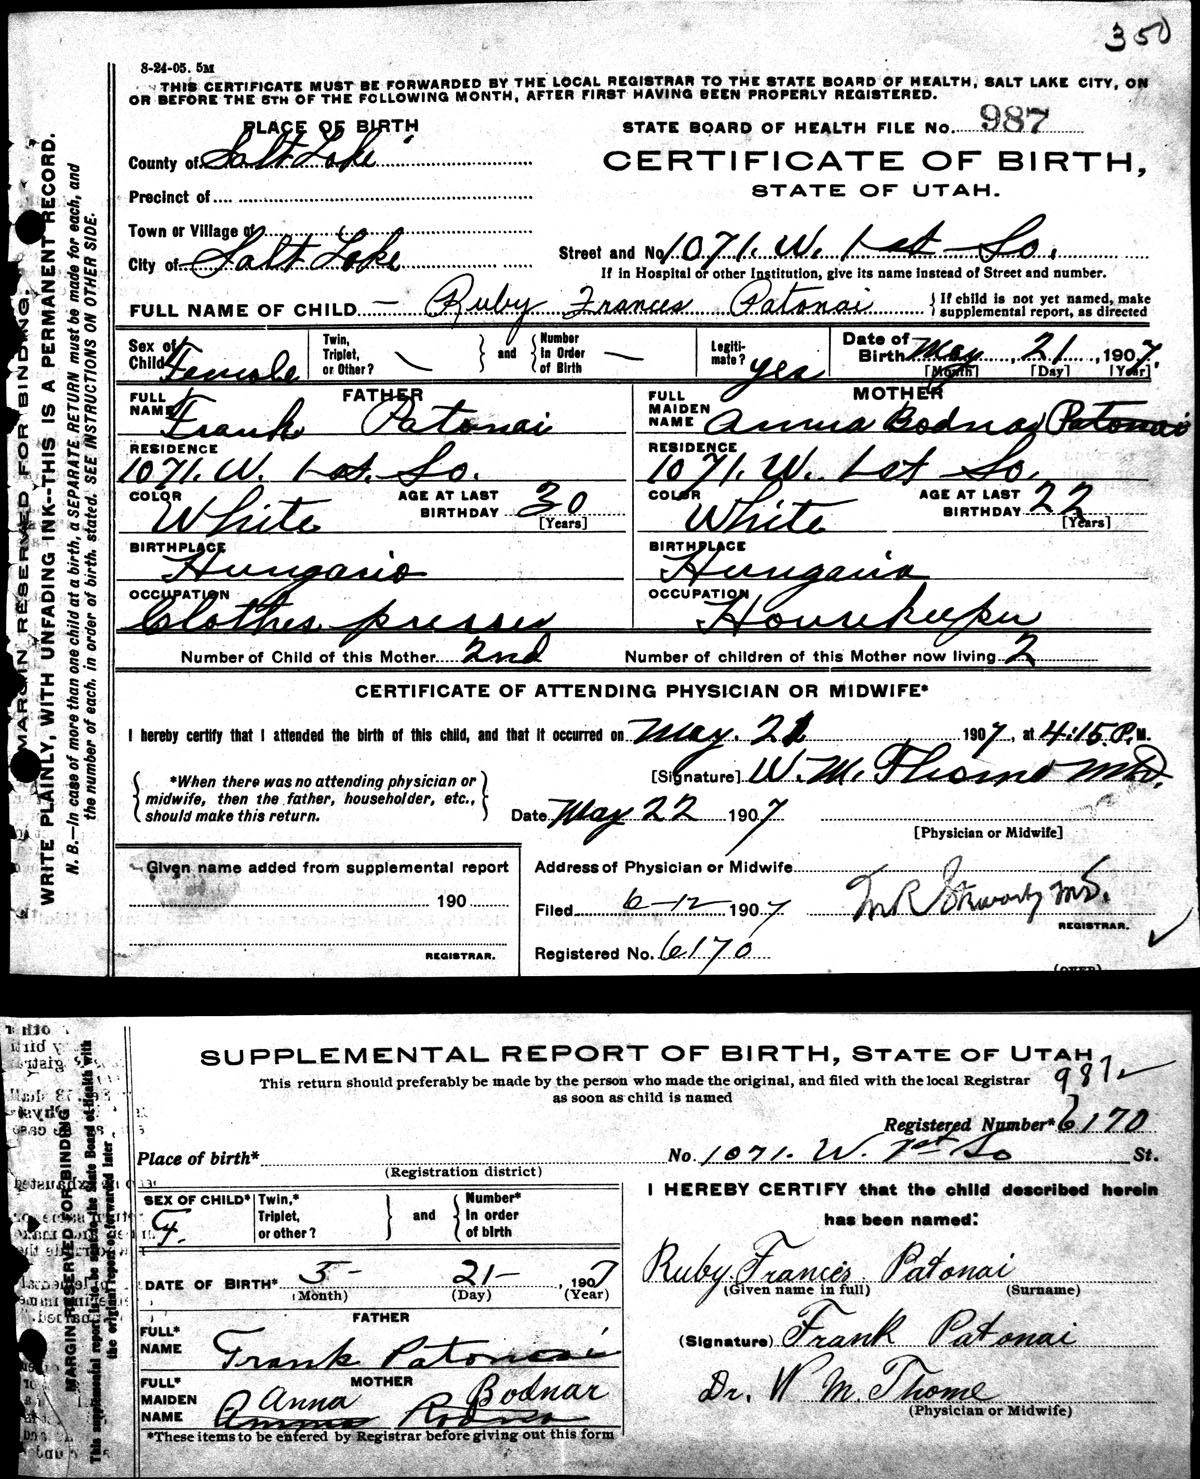 350
8-24-05. 5M
THIS CERTIFICATE MUST BE FORWARDED BY THE LOCAL REGISTRAR TO THE STATE BOARD OF HEALTH, SALT LAKE CITY, ON
OR BEFORE THE 5TH OF THE FOLLOWING MONTH, AFTER FIRST HAVING BEEN PROPERLY REGISTERED.
PLACE OF BIRTH
STATE BOARD OF HEALTH FILE No. 987
County of Salt Lake
CERTIFICATE OF BIRTH,
STATE OF UTAH.
Precinct of
Town or Village of
City of Salt Lake
Street and No. 1071. W. 1st So.
If in Hospital or other Institution, give its name instead of Street and number.
FULL NAME OF CHILD — Ruby Frances Patonai
If child is not yet named, make
supplemental report, as directed
Sex of Child Female
Twin, Triplet, or Other?
and
Number in Order of Birth —
Legiti-mate? yes
Date of Birth May, 21, 1907.
[Month] [Day] [Year]
FATHER
FULL NAME Frank Patonai
MOTHER
FULL MAIDEN NAME Anna Bodnar Patonai
RESIDENCE 1071. W. 1st. So.
RESIDENCE 1071. W. 1st So.
COLOR White
AGE AT LAST BIRTHDAY 30
[Years]
COLOR White
AGE AT LAST BIRTHDAY 22
[Years]
BIRTHPLACE Hungaria
BIRTHPLACE Hungaria
OCCUPATION Clothes presser
OCCUPATION Housekeeper
Number of Child of this Mother 2nd
Number of children of this Mother now living 2
CERTIFICATE OF ATTENDING PHYSICIAN OR MIDWIFE*
I hereby certify that I attended the birth of this child, and that it occurred on May. 21 1907, at 4:15 P.M.
*When there was no attending physician or
midwife, then the father, householder, etc.,
should make this return.
[Signature] W. M. Thome M.D.
Date May 22 1907
[Physician or Midwife]
Given name added from supplemental report
190
REGISTRAR.
Address of Physician or Midwife
Filed 6-12 1907
REGISTRAR.
Registered No. 6170
(OVER)
MARGIN RESERVED FOR BINDING.
WRITE PLAINLY, WITH UNFADING INK--THIS IS A PERMANENT RECORD.
N. B.—In case of more than one child at a birth, a SEPARATE RETURN must be made for each, and
the number of each, in order of birth, stated. SEE INSTRUCTIONS ON OTHER SIDE.
SUPPLEMENTAL REPORT OF BIRTH, STATE OF UTAH
This return should preferably be made by the person who made the original, and filed with the local Registrar
as soon as child is named
987
Registered Number* 6170
Place of birth*
(Registration district)
No. 1071. W. 1st So St.
SEX OF CHILD* F.
Twin,* Triplet, or other?
and
Number* in order of birth
I HEREBY CERTIFY that the child described herein
has been named:
DATE OF BIRTH* 5- 21-, 1907
(Month) (Day) (Year)
Ruby Francis Patonai
(Given name in full) (Surname)
FATHER
FULL* NAME Frank Patonai
(Signature) Frank Patonai
MOTHER
FULL* MAIDEN NAME Anna Bodnar
Dr. W M. Thome
(Physician or Midwife)
*These items to be entered by Registrar before giving out this form
MARGIN RESERVED FOR BINDING
This supplemental report is to be sent to the State Board of Health with
the original report or forwarded later